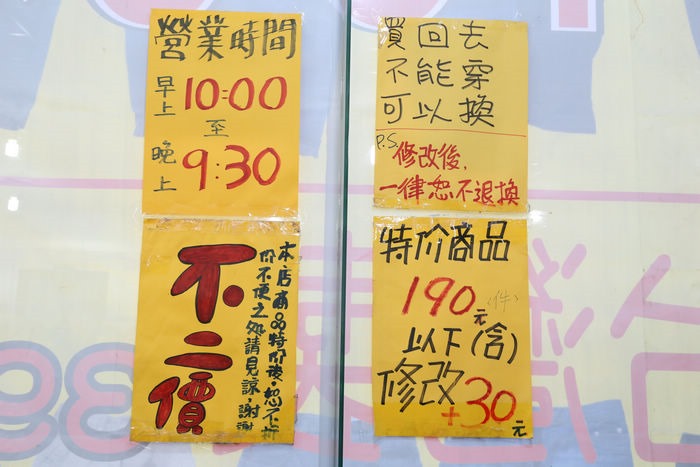 營業時間
早上 10:00
至
晚上 9:30
買回去
不能穿
可以換
P.S. 修改後,
一律恕不退換
不二價
本店商品特价後,恕不折
价不便之处請見諒,謝謝
特价商品
190元(件)
以下(含)
修改
+30元